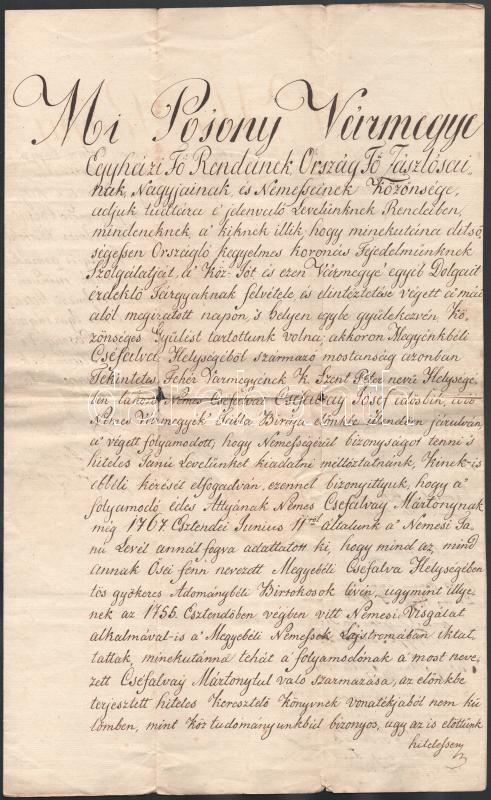 Mi Posony Vármegye
Egyházi Fő Rendeinek, Ország Fő Zászlósai-
nak, Nagyjainak, és Nemesseinek Közönsége,
adjuk tudtára é jelenvaló Levelünknek Rendeiben,
mindeneknek, a' kiknek illik, hogy minekutánna ditsö-
ségessen Országló kegyelmes koronás Fejedelmünknek
Szolgálatját, a' Köz-Jót és ezen Vármegye egyéb Dolgait
érdeklő Tárgyaknak felvétele, és elintéztetése végett a' mái
alól megiratott napon, 's helyen egybe gyülekezvén Kö-
zönséges Gyülést tartottunk volna, akkoron Megyénkbéli
Cséfalva Helységéből származó mostanság azonban
Tekintetes Fehér Vármegyének K. Szent Péter nevű Helységé-
ben lakozó Nemes Cséfalvai Cséfalvay Jósef
Nemes Vármegyék Tábla Birája előnkbe járulván,
a' végett folyamodott, hogy Nemességérül bizonyságot tenni 's
hiteles Tanú Levelünket kiadatni méltóztatnánk, Kinek-is
ebbéli kérését elfogadván, ezennel bizonyittyuk, hogy a'
folyamodó édes Attyának Nemes Csefalvay Mártonynak
még 1767 Esztendei Junius 11ról általunk a' Nemesi Ta-
nú Levél annál fogva adattatott ki, hogy mind az, mind
annak Ősei fenn nevezett Megyebéli Csefalva Helységében
tös gyökeres Adománybéli Birtokosok lévén, ugymint illye-
nek az 1755. Esztendőben végben vitt Nemesi Visgálat
alkalmával-is a' Megyebéli Nemessek Lajstromában iktat-
tattak, minekutánna tehát a' folyamodónak a' most neve-
zett Cséfalvay Mártonytul való származása, az előnkbe
terjesztett hiteles Keresztelő Könyvnek vonatékjából nem kü-
lömben, mint Köz tudományunkbúl bizonyos, ugy az is előttünk
hitelessen